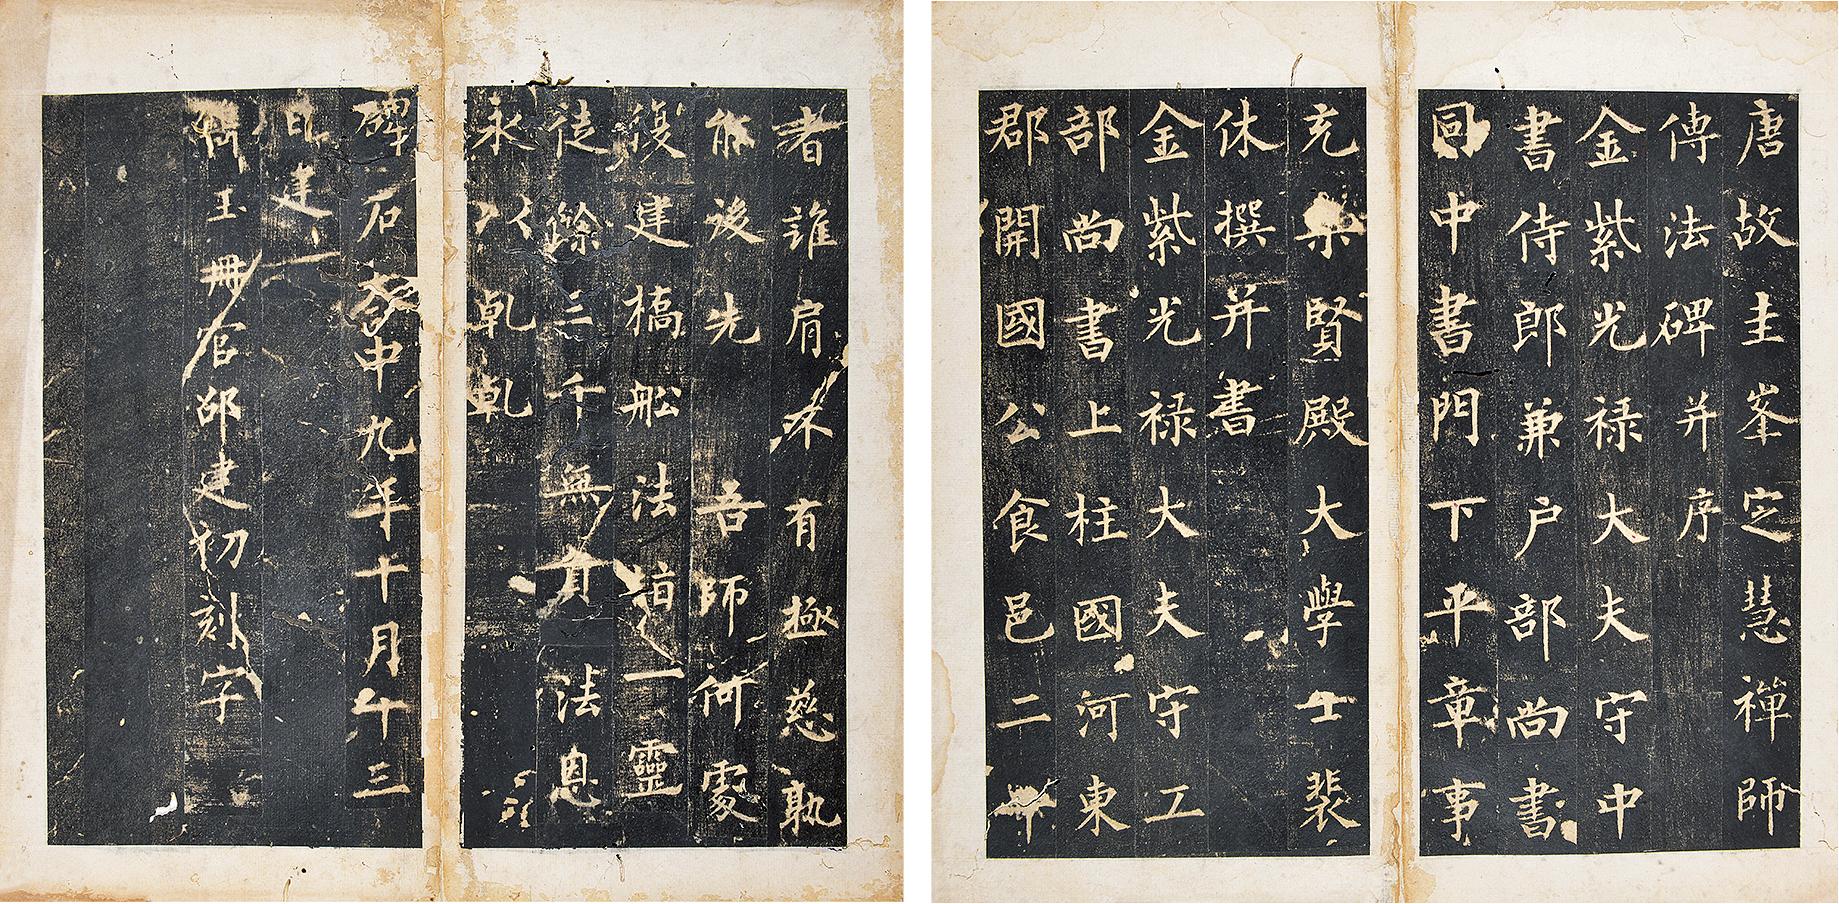 唐故圭峯定慧禪師
傳法碑并序
金紫光禄大夫守中
書侍郎兼户部尚書
同中書門下平章事
充集賢殿大學士裴
休撰并書
金紫光禄大夫守工
部尚書上柱國河東
郡開國公食邑二
者誰肩不有極慈孰
能後先 吾師何處
復建橋舩法指一靈
徒餘三千無負法恩
永以乹乹
碑石中九年十月十三
日建
鐫玉冊官邵建初刻字